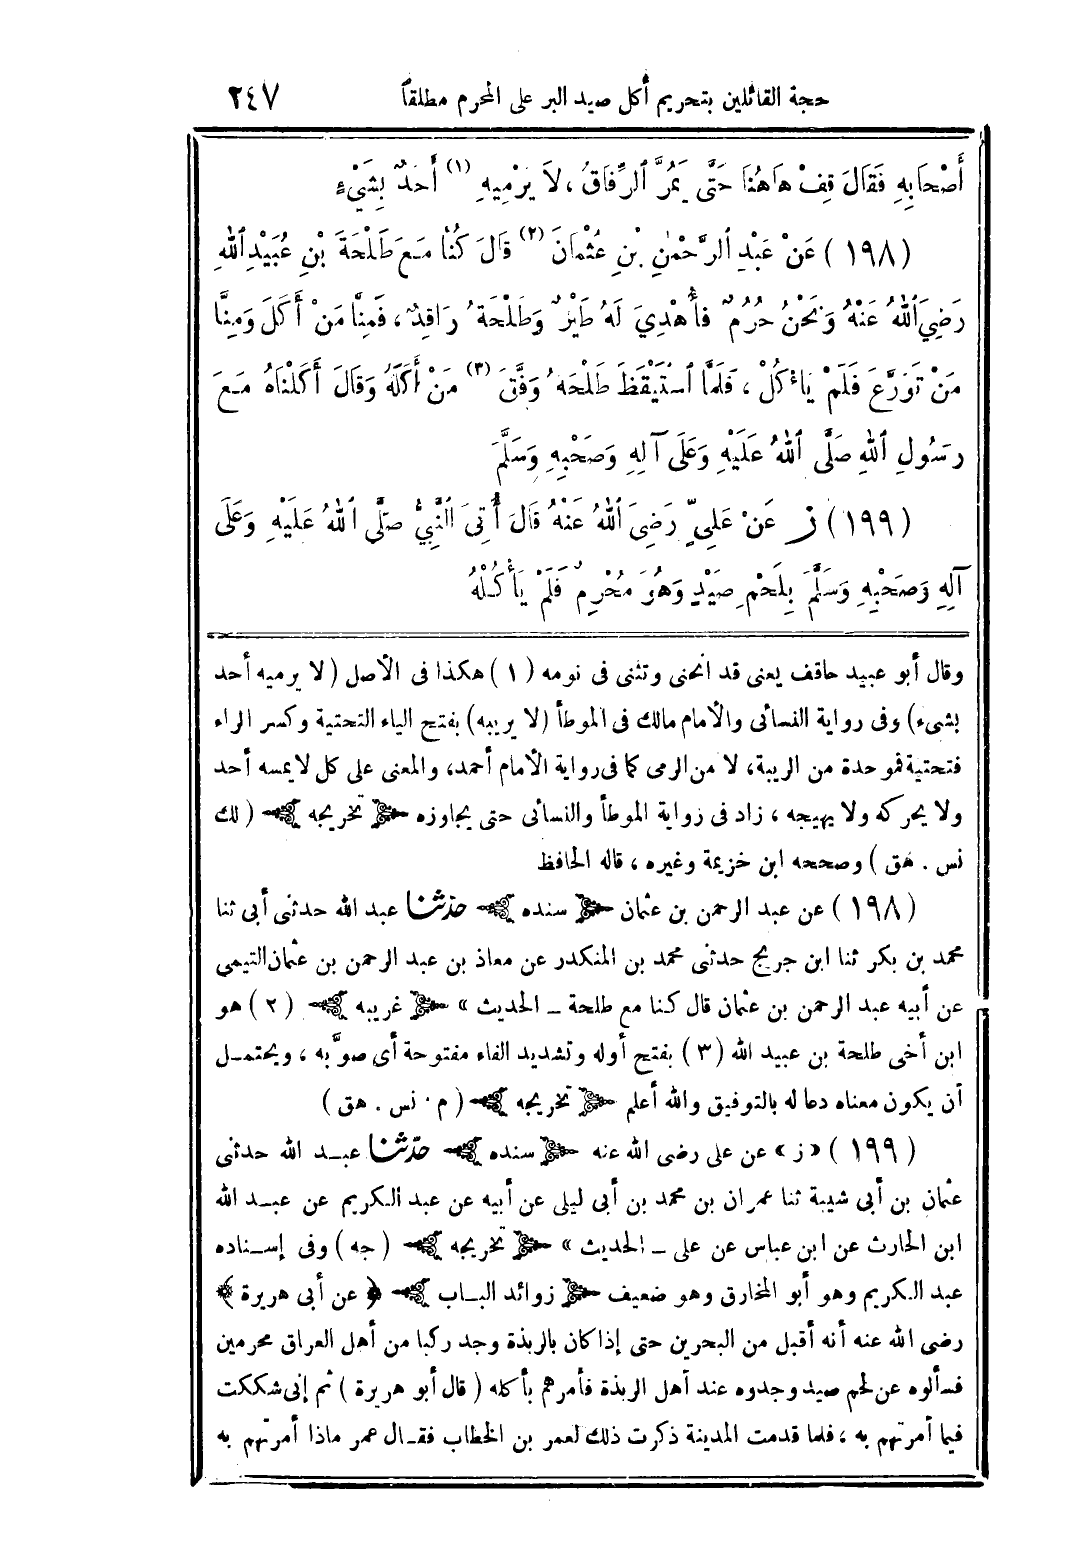 حجة القائلين بتحريم أكل صيد البر على المحرم مطلقاً ٢٤٧
أَصْحَابِهِ فَقَالَ قِفْ هَاهُنَا حَتَّى يَمُرَّ ٱلرِّفَاقُ ، لاَ يَرْمِيهِ (١) أَحَدٌ بِشَيْءٍ
(١٩٨) عَنْ عَبْدِ ٱلرَّحْمٰنِ بْنِ عُثْمَانَ (٢) قَالَ كُنَّا مَعَ طَلْحَةَ بْنِ عُبَيْدِ ٱللهِ
رَضِيَ ٱللهُ عَنْهُ وَنَحْنُ حُرُمٌ فَأُهْدِيَ لَهُ طَيْرٌ وَطَلْحَةُ رَاقِدٌ ، فَمِنَّا مَنْ أَكَلَ وَمِنَّا
مَنْ تَوَرَّعَ فَلَمْ يَأْكُلْ ، فَلَمَّا ٱسْتَيْقَظَ طَلْحَةُ وَفَّقَ (٣) مَنْ أَكَلَهُ وَقَالَ أَكَلْنَاهُ مَعَ
رَسُولِ ٱللهِ صَلَّى ٱللهُ عَلَيْهِ وَعَلَى آلِهِ وَصَحْبِهِ وَسَلَّمَ
(١٩٩) ز عَنْ عَلِيٍّ رَضِيَ ٱللهُ عَنْهُ قَالَ أُتِيَ ٱلنَّبِيُّ صَلَّى ٱللهُ عَلَيْهِ وَعَلَى
آلِهِ وَصَحْبِهِ وَسَلَّمَ بِلَحْمِ صَيْدٍ وَهُوَ مُحْرِمٌ فَلَمْ يَأْكُلْهُ
وقال أبو عبيد حاقف يعنى قد انحنى وتثنى فى نومه (١) هكذا فى الأصل (لا يرميه أحد
بشىء) وفى رواية النسائى والأمام مالك فى الموطأ (لا يريبه) بفتح الياء التحتية وكسر الراء
فتحتية فموحدة من الريبة، لا من الرمى كما فى رواية الأمام أحمد، والمعنى على كل لايمسه أحد
ولا يحركه ولا يهيجه ، زاد فى رواية الموطأ والنسائى حتى يجاوزه ﴿ تخريجه ﴾ (لك
نس . هق) وصححه ابن خزيمة وغيره ، قاله الحافظ
(١٩٨) عن عبد الرحمن بن عثمان ﴿ سنده ﴾ حدّثنا عبد الله حدثنى أبى ثنا
محمد بن بكر ثنا ابن جريج حدثنى محمد بن المنكدر عن معاذ بن عبد الرحمن بن عثمان التيمى
عن أبيه عبد الرحمن بن عثمان قال كنا مع طلحة ــ الحديث » ﴿ غريبه ﴾ (٢) هو
ابن أخى طلحة بن عبيد الله (٣) بفتح أوله وتشديد الفاء مفتوحة أى صوَّبه ، ويحتمــل
أن يكون معناه دعا له بالتوفيق والله أعلم ﴿ تخريجه ﴾ (م . نس . هق)
(١٩٩) «ز» عن على رضى الله عنه ﴿ سنده ﴾ حدّثنا عبــد الله حدثنى
عثمان بن أبى شيبة ثنا عمران بن محمد بن أبى ليلى عن أبيه عن عبد الكريم عن عبــد الله
ابن الحارث عن ابن عباس عن على ــ الحديث » ﴿ تخريجه ﴾ (جه) وفى إســناده
عبد الكريم وهو أبو المخارق وهو ضعيف ﴿ زوائد البــاب ﴾ ﴿ عن أبى هريرة ﴾
رضى الله عنه أنه أقبل من البحرين حتى إذا كان بالربذة وجد ركبا من أهل العراق محرمين
فسألوه عن لحم صيد وجدوه عند أهل الربذة فأمرهم بأكله (قال أبو هريرة) ثم إنى شككت
فيما أمرتهم به ، فلما قدمت المدينة ذكرت ذلك لعمر بن الخطاب فقــال عمر ماذا أمرتهم به